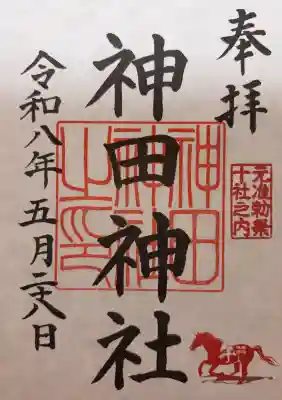 奉拝
元准勅祭
十社之内
神田神社
神田
神社
之印
令和八年五月二十八日